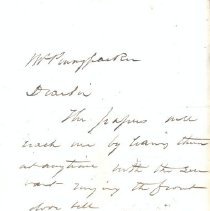 Mr Pennypacker
Dear Sir
The papers will
reach me by leaving them
at any time with the ser
vant ringing the front
door bell